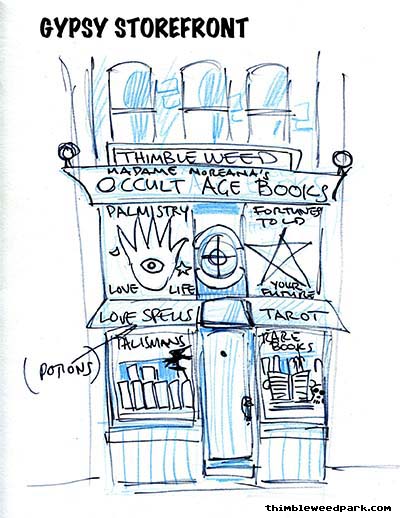 GYPSY STOREFRONT
THIMBLEWEED
MADAME MOREANA'S
OCCULT AGE BOOKS
PALMISTRY
FORTUNES
TOLD
LOVE
LIFE
YOUR
FUTURE
LOVE SPELLS
TAROT
TALISMANS
RARE
BOOKS
(POTIONS)
thimbleweedpark.com